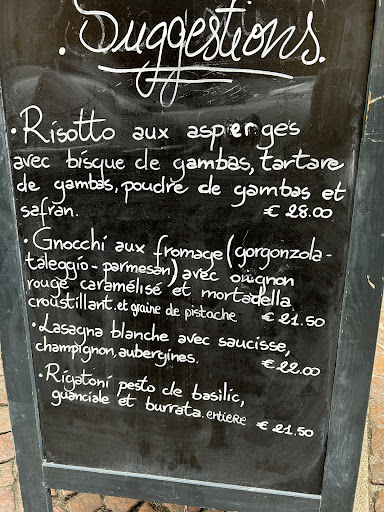 . Suggestions.
• Risotto aux asperges
avec bisque de gambas, tartare
de gambas, poudre de gambas et
safran. € 28.00
• Gnocchi aux fromage (gorgonzola -
taleggio - parmesan) avec oingnon
rouge caramélisé et mortadella
croustillant. et graine de pistache € 21.50
• Lasagna blanche avec saucisse,
champignon, aubergines. € 22.00
• Rigatoni pesto de basilic,
guanciale et burrata. entiere € 21.50